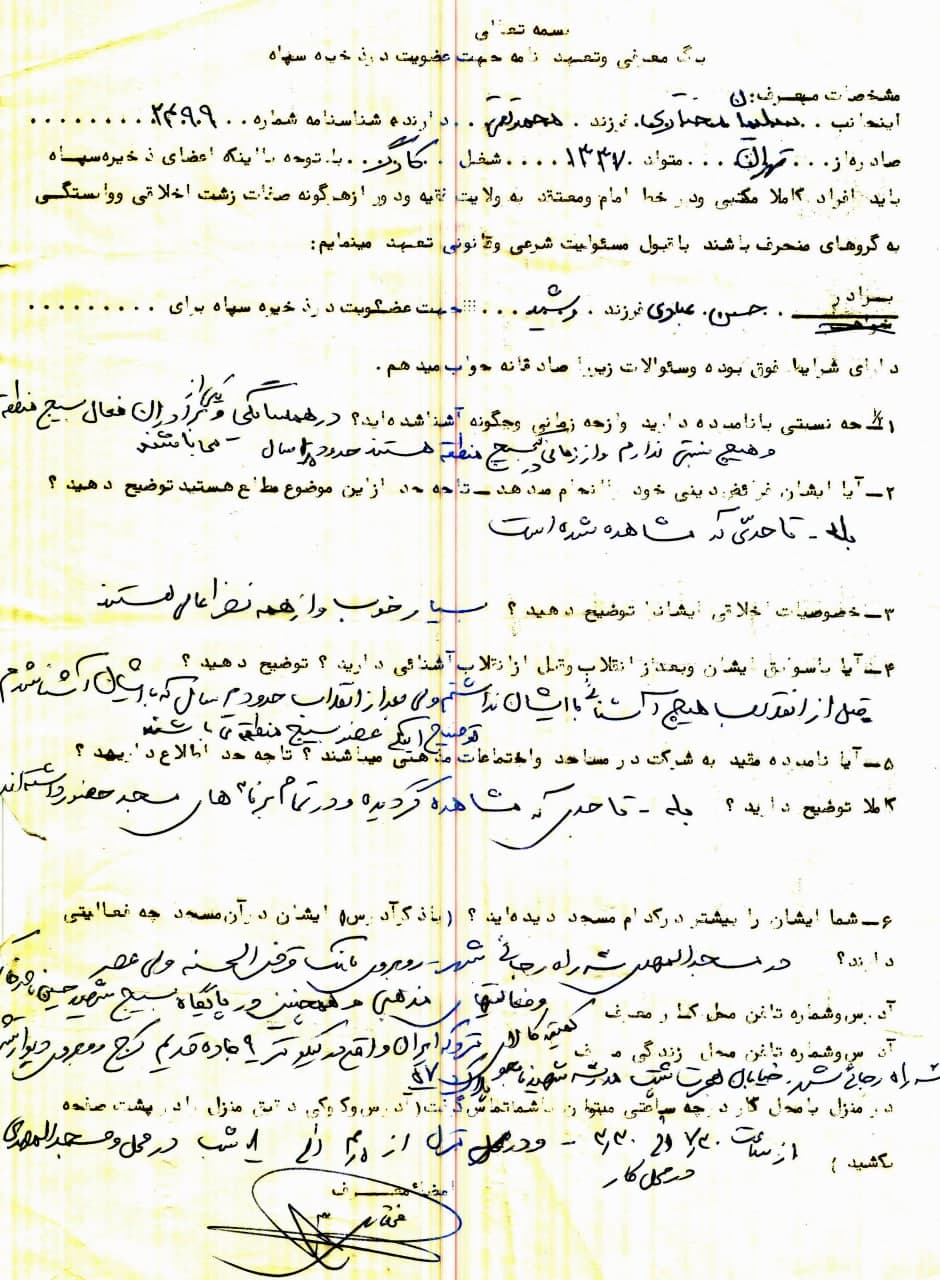 بسمه تعالی
برگ معرفی وتعهد نامه جهت عضویت در ذخیره سپاه
مشخصات معرف:
اینجانب فرزند دارنده شناسنامه شماره ۲۴۹۰۹
صادره از تهران متولد ۱۳۳۷ شغل کارگر با توجه بااینکه اعضای ذخیره سپاه
باید افراد کاملا مکتبی ودر خط امام ومعتقد به ولایت فقیه ودور ازهرگونه صفات زشت اخلاقی ووابستگی
به گروهای منحرف باشند باقبول مسئولیت شرعی وقانونی تعهد مینمایم:
برادر
خواهر حسن عبادی فرزند رشید جهت عضویت در ذخیره سپاه برای
دارای شرایط فوق بوده وسئوالات زیررا صادقانه جواب میدهم.
۱ـ چه نسبتی بانامبرده دارید وازچه زمانی وچگونه آشناشده‌اید؟ در همسایگی و یکی از برادران فعال بسیج منطقه
می‌باشند
و هیچ نسبتی ندارم و از زمانی در بسیج منطقه هستند حدود سال
۲ـ آیا ایشان فرائض دینی خود را انجام میدهد ـ تاچه حد از این موضوع مطلع هستید توضیح دهید؟
بله - تا حدّی که مشاهده شده است
۳ـ خصوصیات اخلاقی ایشانرا توضیح دهید؟ بسیار خوب و از همه نظر عالی هستند
۴ـ آیا باسوابق ایشان وبعداز انقلاب وقبل ازانقلاب آشنائی دارید؟ توضیح دهید؟
قبل از انقلاب هیچ آشنائی با ایشان نداشتم ولی بعد از انقلاب حدود ۲ سال که با ایشان آشنا شدم
توضیح اینکه عضو بسیج منطقه می باشند
۵ـ آیا نامبرده مقید به شرکت در مساجد واجتماعات مذهبی میباشند؟ تاچه حد اطلاع دارید؟
کاملا توضیح دارید؟ بله - تا حدی که مشاهده گردیده و در تمام برنامه های مسجد حضور داشته‌اند
۶ـ شما ایشان را بیشتر در کدام مسجد دیده‌اید؟ (باذکر آدرس) ایشان درآن مسجد چه فعالیتی
دارند؟ در مسجد المهدی سه راه رجائی شهر - روبروی بانک قرض الحسنه ولی عصر
و فعالیتهای مذهبی و همچنین در پایگاه بسیج شهید حسین
آدرس وشماره تلفن محل کار معرف کالای ایران واقع در کیلومتر ۹ جاده قدیم کرج روبروی
آدرس وشماره تلفن محل زندگی معرف سه راه رجائی شهر - خیابان هجرت پشت مدرسه شهید پلاک ۵۷
در منزل یامحل کار درچه ساعتی میتوان باشماتماس گرفت (آدرس وکروکی دقیق منزل رادر پشت صفحه
بکشید) از ساعت ۷/۳۰ الی ۳/۳۰ - و در محل منزل از الی ۸ شب در محل و مسجد المهدی
در محل کار
امضاء معرف